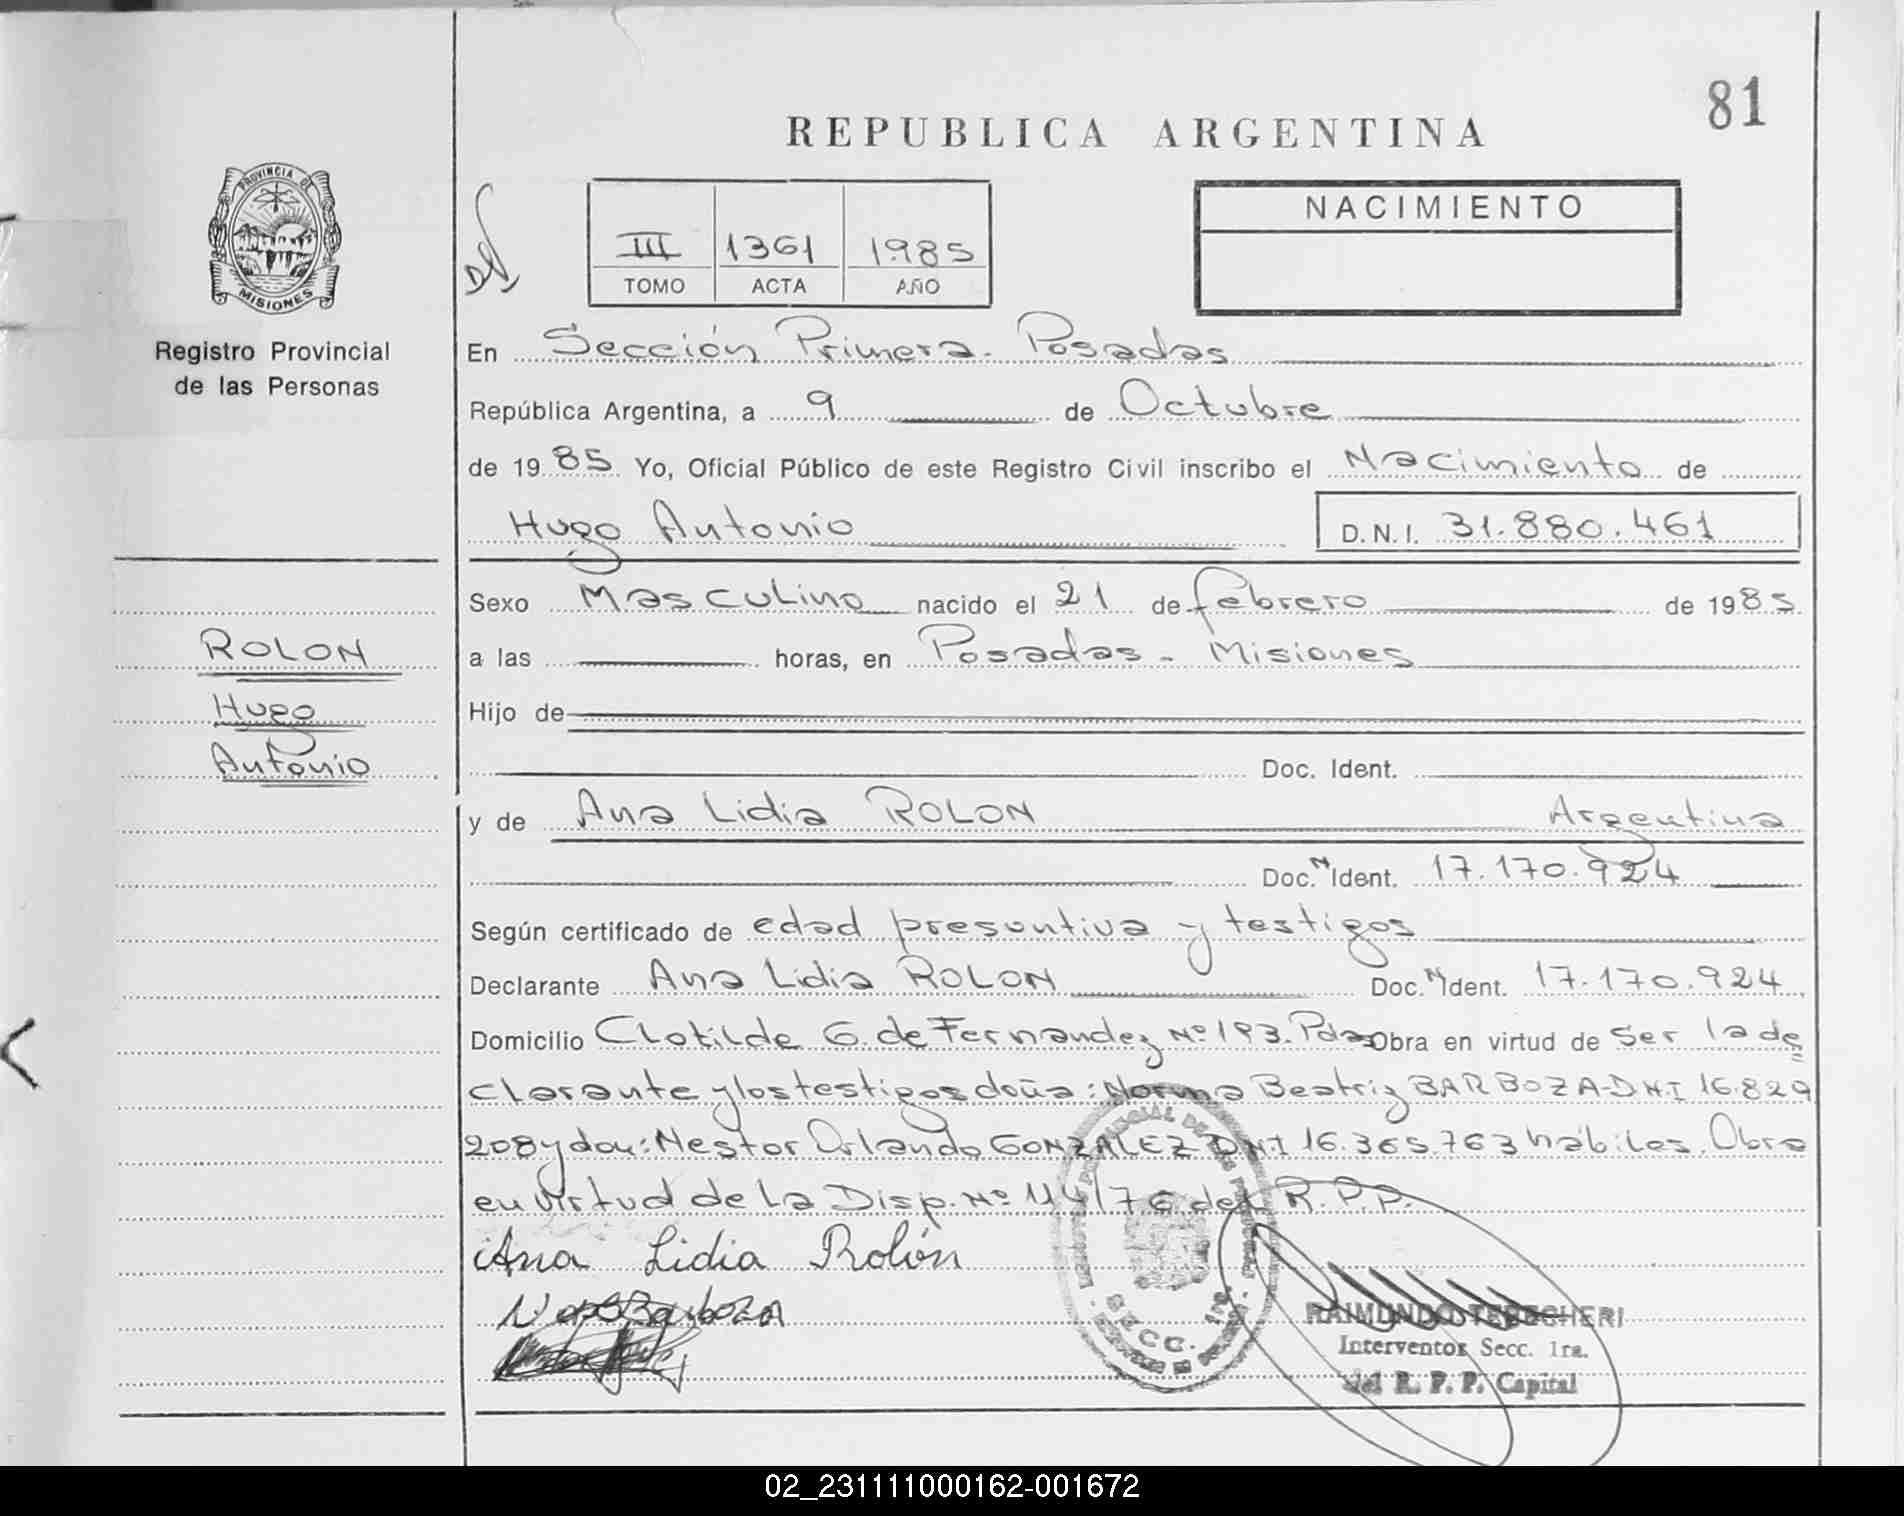 81
REPUBLICA ARGENTINA
PROVINCIA DE
MISIONES
Registro Provincial
de las Personas
III 1361 1985
TOMO ACTA AÑO
NACIMIENTO
En Sección Primera. Posadas
República Argentina, a 9 de Octubre
de 1985 Yo, Oficial Público de este Registro Civil inscribo el Nacimiento de
Hugo Antonio D.N.I. 31.880.461
Sexo Masculino nacido el 21 de febrero de 1985
ROLON
Hugo
Antonio
a las horas, en Posadas - Misiones
Hijo de
Doc. Ident.
y de Ana Lidia ROLON Argentina
Doc. N Ident. 17.170.924
Según certificado de edad presuntiva y testigos
Declarante Ana Lidia ROLON Doc. N Ident. 17.170.924
Domicilio Clotilde G. de Fernandez Nº 193. Pdas Obra en virtud de ser la de
clarante y los testigos doña: Norma Beatriz BARBOZA-DNI 16.829
208 y don: Nestor Orlando GONZALEZ DNI 16.365.763 hábiles. Obra
en virtud de la Disp. Nº 114/76 del R.P.P.
Ana Lidia Rolón
Barboza
SECC. 1ra.
RAIMUNDO TERECHERI
Interventor Secc. 1ra.
del R. P. P. Capital
02_231111000162-001672